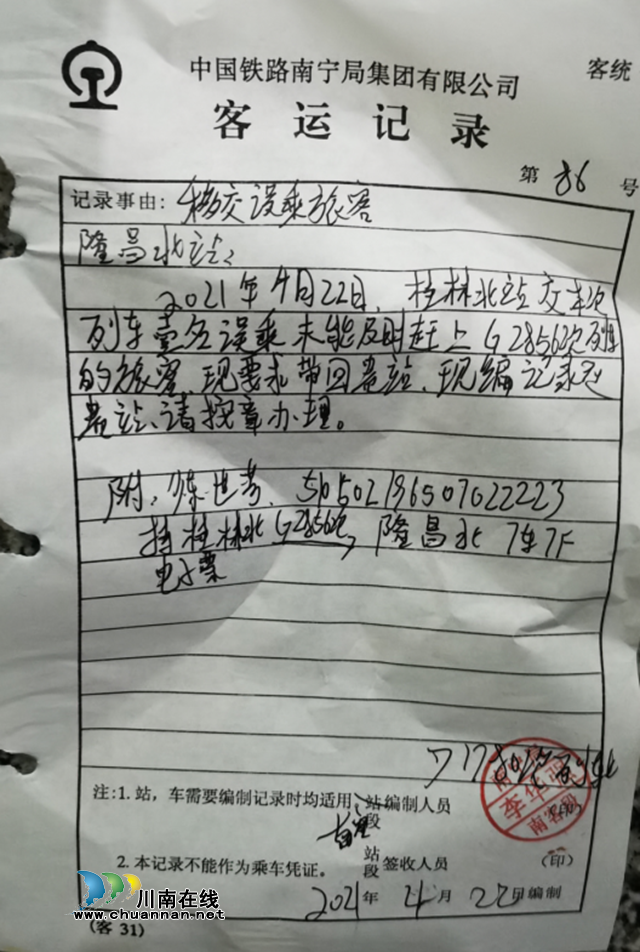 中国铁路南宁局集团有限公司
客统
客运记录
第 86 号
记录事由: 移交误乘旅客
隆昌北站:
2021年4月22日,桂林北站交本次
列车壹名误乘未能及时赶上G2856次列车
的旅客,现要求带回贵站,现编记录交
贵站,请按章办理。
附:
持桂林北G2856次 隆昌北 7车7F
电子票
注:1. 站,车需要编制记录时均适用
站
段
编制人员
2. 本记录不能作为乘车凭证。
站
段
签收人员
(印)
2021年4月22日编制
川南在线
www.chuannan.net
(客 31)